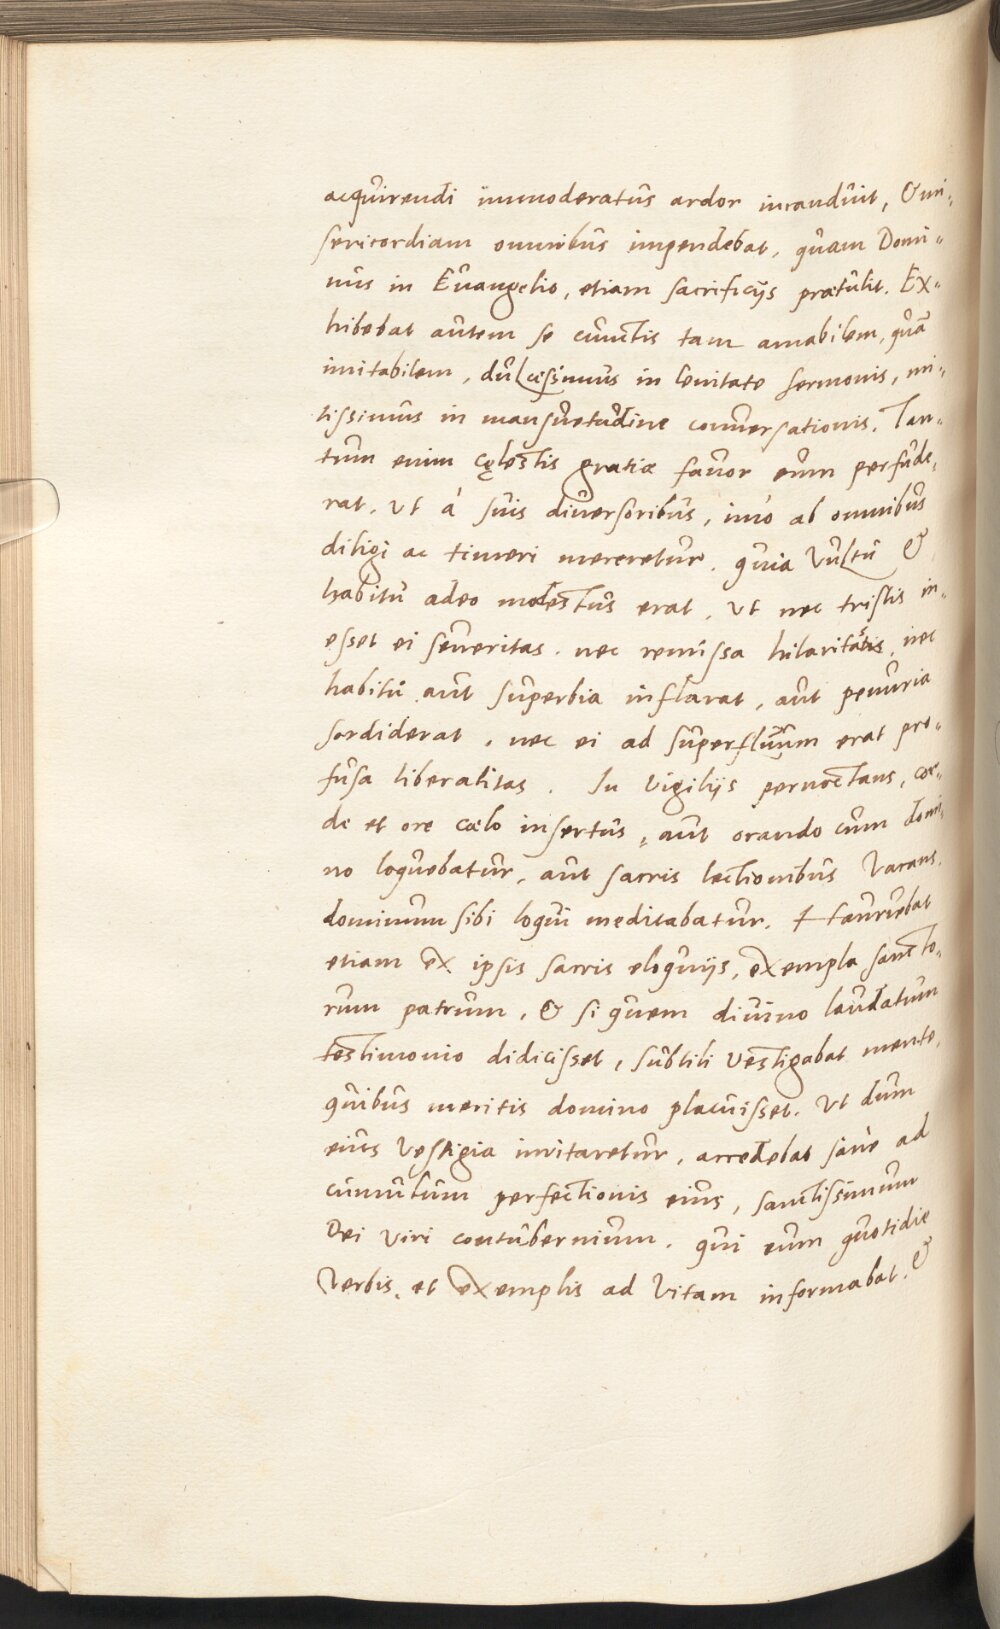 acquirendi immoderatus ardor incanduit, & mi-
sericordiam omnibus impendebat, quam Domi-
nus in Euangelio, etiam sacrificijs prætulit. Ex-
hibebat autem se cunctis tam amabilem, quã
imitabilem, dulcissimus in lenitate sermonis, mi-
tissimus in mansuetudine conuersationis. Tan-
tum enim cęlestis gratiæ fauor eum perfude-
rat, ut á suis diuersoribus, imó ab omnibus
diligi ac timeri mereretur. quia Vultu &
habitu adeo modestus erat, ut nec tristis in-
esset ei seueritas, nec remissa hilaritas, nec
habitu aut superbia inflarat, aut penuria
sordiderat, nec ei ad superfluum erat pro-
fusa liberalitas. In Vigilijs pernoctans, cor-
de et ore cælo insertus, aut orando cum domi-
no loquebatur, aut sacris lectionibus Vacans,
dominum sibi loqui meditabatur. Hauriebat
etiam ex ipsis sacris eloquijs, exempla sancto-
rum patrum, & si quem diuino laudatum
testimonio didicisset, subtili Vestigabat mente,
quibus meritis domino placuisset. Ut dum
eius Vestigia imitaretur, accedebat sane ad
cumulum perfectionis eius, sanctissimum
Dei viri contubernium, qui eum quotidie
Verbis, et exemplis ad Vitam informabat. &